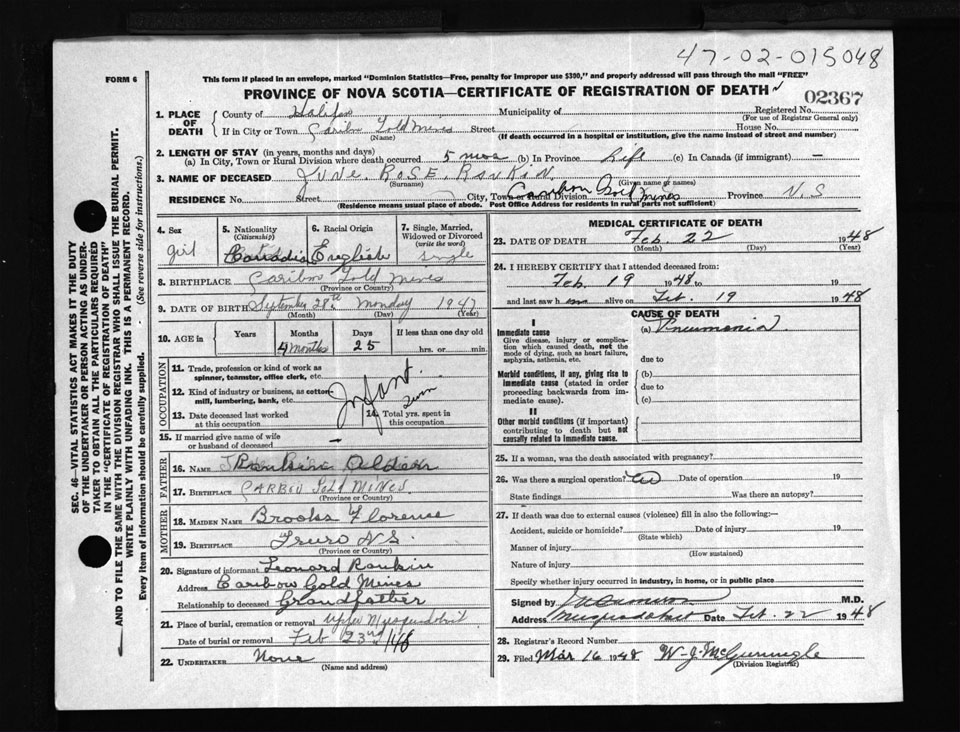 47-02-015048
FORM 6
This form if placed in an envelope, marked "Dominion Statistics—Free, penalty for improper use $300," and properly addressed will pass through the mail "FREE"
PROVINCE OF NOVA SCOTIA—CERTIFICATE OF REGISTRATION OF DEATH
02367
1. PLACE OF DEATH
County of Halifax Municipality of Registered No.
(For use of Registrar General only)
If in City or Town Caribou Gold Mines Street House No.
(Name) (If death occurred in a hospital or institution, give the name instead of street and number)
2. LENGTH OF STAY (in years, months and days)
(a) In City, Town or Rural Division where death occurred 5 mos (b) In Province Life (c) In Canada (if immigrant) —
3. NAME OF DECEASED JUNE. ROSE. RANKIN.
(Surname) (Given name or names)
RESIDENCE No. Street City, Town or Rural Division Caribou Gold Mines Province N.S
(Residence means usual place of abode. Post Office Address for residents in rural parts not sufficient)
4. Sex
girl
5. Nationality
(Citizenship)
Canadia
6. Racial Origin
English
7. Single, Married, Widowed or Divorced
(write the word)
Single
8. BIRTHPLACE Caribou Gold Mines
(Province or Country)
9. DATE OF BIRTH September 28th Monday 1947
(Month) (Day) (Year)
10. AGE in
Years Months Days If less than one day old
4 months 25 hrs. or min.
OCCUPATION
11. Trade, profession or kind of work as spinner, teamster, office clerk, etc.
12. Kind of industry or business, as cotton mill, lumbering, bank, etc.
Infant.
13. Date deceased last worked at this occupation
14. Total yrs. spent in this occupation
15. If married give name of wife or husband of deceased —
FATHER
16. NAME Rankin
17. BIRTHPLACE CARBOU Gold MINES
(Province or Country)
MOTHER
18. MAIDEN NAME Brooks Florence
19. BIRTHPLACE Truro N S.
(Province or Country)
20. Signature of informant Leonard Rankin
Address Caribow Gold Mines
Relationship to deceased Grandfather
21. Place of burial, cremation or removal Upper
Date of burial or removal Feb 23rd/48
22. UNDERTAKER None
(Name and address)
MEDICAL CERTIFICATE OF DEATH
23. DATE OF DEATH Feb. 22 1948
(Month) (Day) (Year)
24. I HEREBY CERTIFY that I attended deceased from:
Feb. 19 1948 to 19
and last saw h alive on Feb. 19 1948
CAUSE OF DEATH
I
Immediate cause (a) Pneumonia
Give disease, injury or complication which caused death, not the mode of dying, such as heart failure, asphyxia, asthenia, etc.
due to
Morbid conditions, if any, giving rise to immediate cause (stated in order proceeding backwards from immediate cause).
(b)
due to
(c)
II
Other morbid conditions (if important) contributing to death but not causally related to immediate cause.
25. If a woman, was the death associated with pregnancy?
26. Was there a surgical operation? Date of operation 19
State findings Was there an autopsy?
27. If death was due to external causes (violence) fill in also the following:—
Accident, suicide or homicide? Date of injury 19
(State which)
Manner of injury
(How sustained)
Nature of injury
Specify whether injury occurred in industry, in home, or in public place
Signed by M.D.
Address Date Feb. 22 1948
28. Registrar's Record Number
29. Filed Mar 16 1948 W-J-
(Division Registrar)
SEC. 46—VITAL STATISTICS ACT MAKES IT THE DUTY
OF THE UNDERTAKER OR PERSON ACTING AS UNDERTAKER TO OBTAIN ALL THE PARTICULARS REQUIRED
IN THE "CERTIFICATE OF REGISTRATION OF DEATH"
AND TO FILE THE SAME WITH THE DIVISION REGISTRAR WHO SHALL ISSUE THE BURIAL PERMIT.
WRITE PLAINLY WITH UNFADING INK. THIS IS A PERMANENT RECORD.
Every item of information should be carefully supplied. (See reverse side for instructions.)